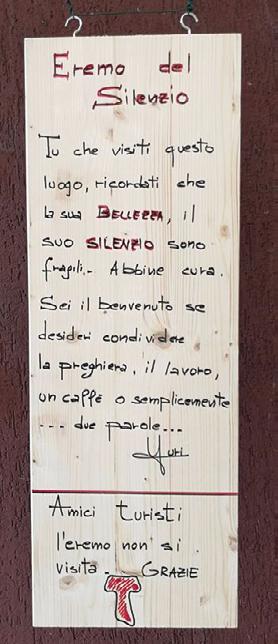 Eremo del
Silenzio
Tu che visiti questo
luogo, ricordati che
la sua BELLEZZA, il
suo SILENZIO sono
fragili.- Abbine cura.
Sei il benvenuto se
desideri condividere
la preghiera, il lavoro,
un caffè o semplicemente
... due parole...
Yuri
Amici turisti
l'eremo non si
visita... GRAZIE